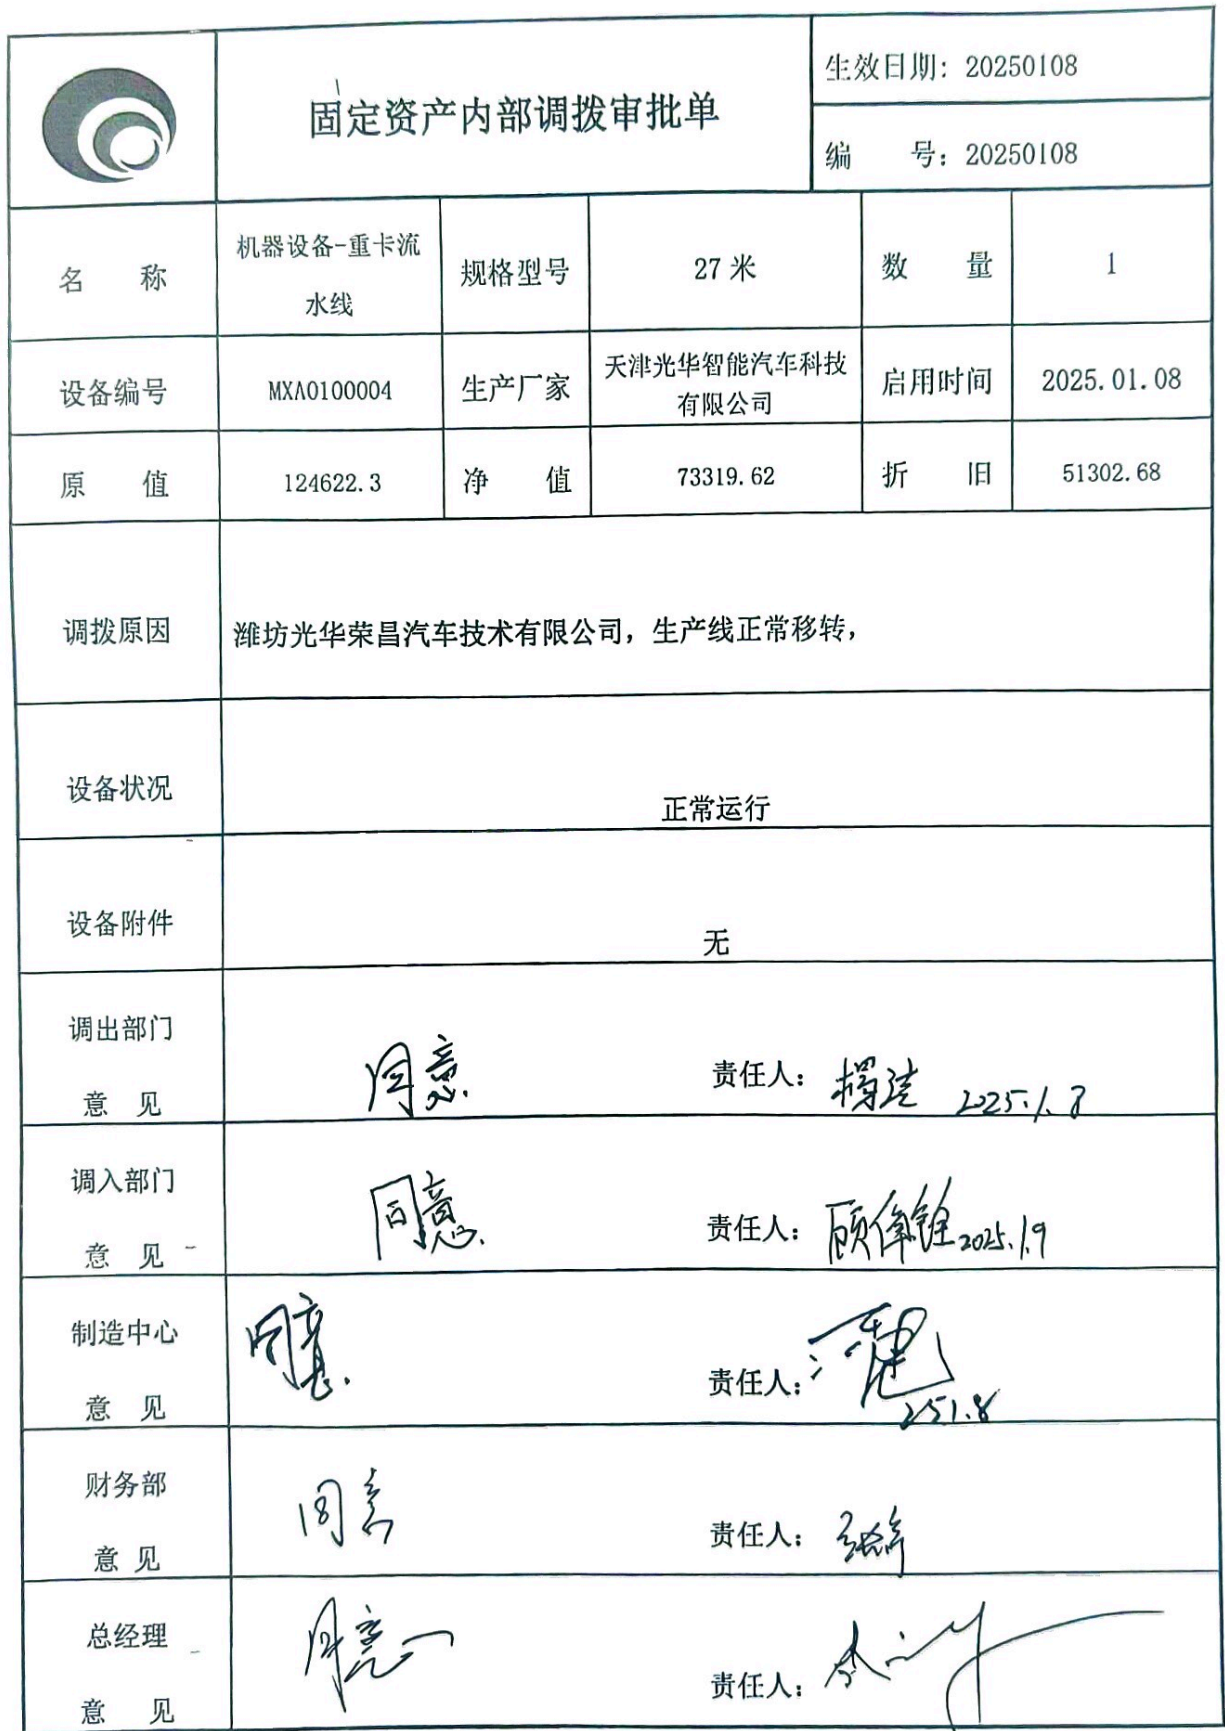 固定资产内部调拨审批单
生效日期: 20250108
编 号: 20250108
名 称
机器设备-重卡流
水线
规格型号
27 米
数 量
1
设备编号
MXA0100004
生产厂家
天津光华智能汽车科技
有限公司
启用时间
2025.01.08
原 值
124622.3
净 值
73319.62
折 旧
51302.68
调拨原因
潍坊光华荣昌汽车技术有限公司，生产线正常移转，
设备状况
正常运行
设备附件
无
调出部门
意 见
同意. 责任人： 2025.1.8
调入部门
意 见
同意. 责任人： 顾伟铨 2025.1.9
制造中心
意 见
同意. 责任人： 25.1.8
财务部
意 见
同意 责任人：
总经理
意 见
同意 责任人：